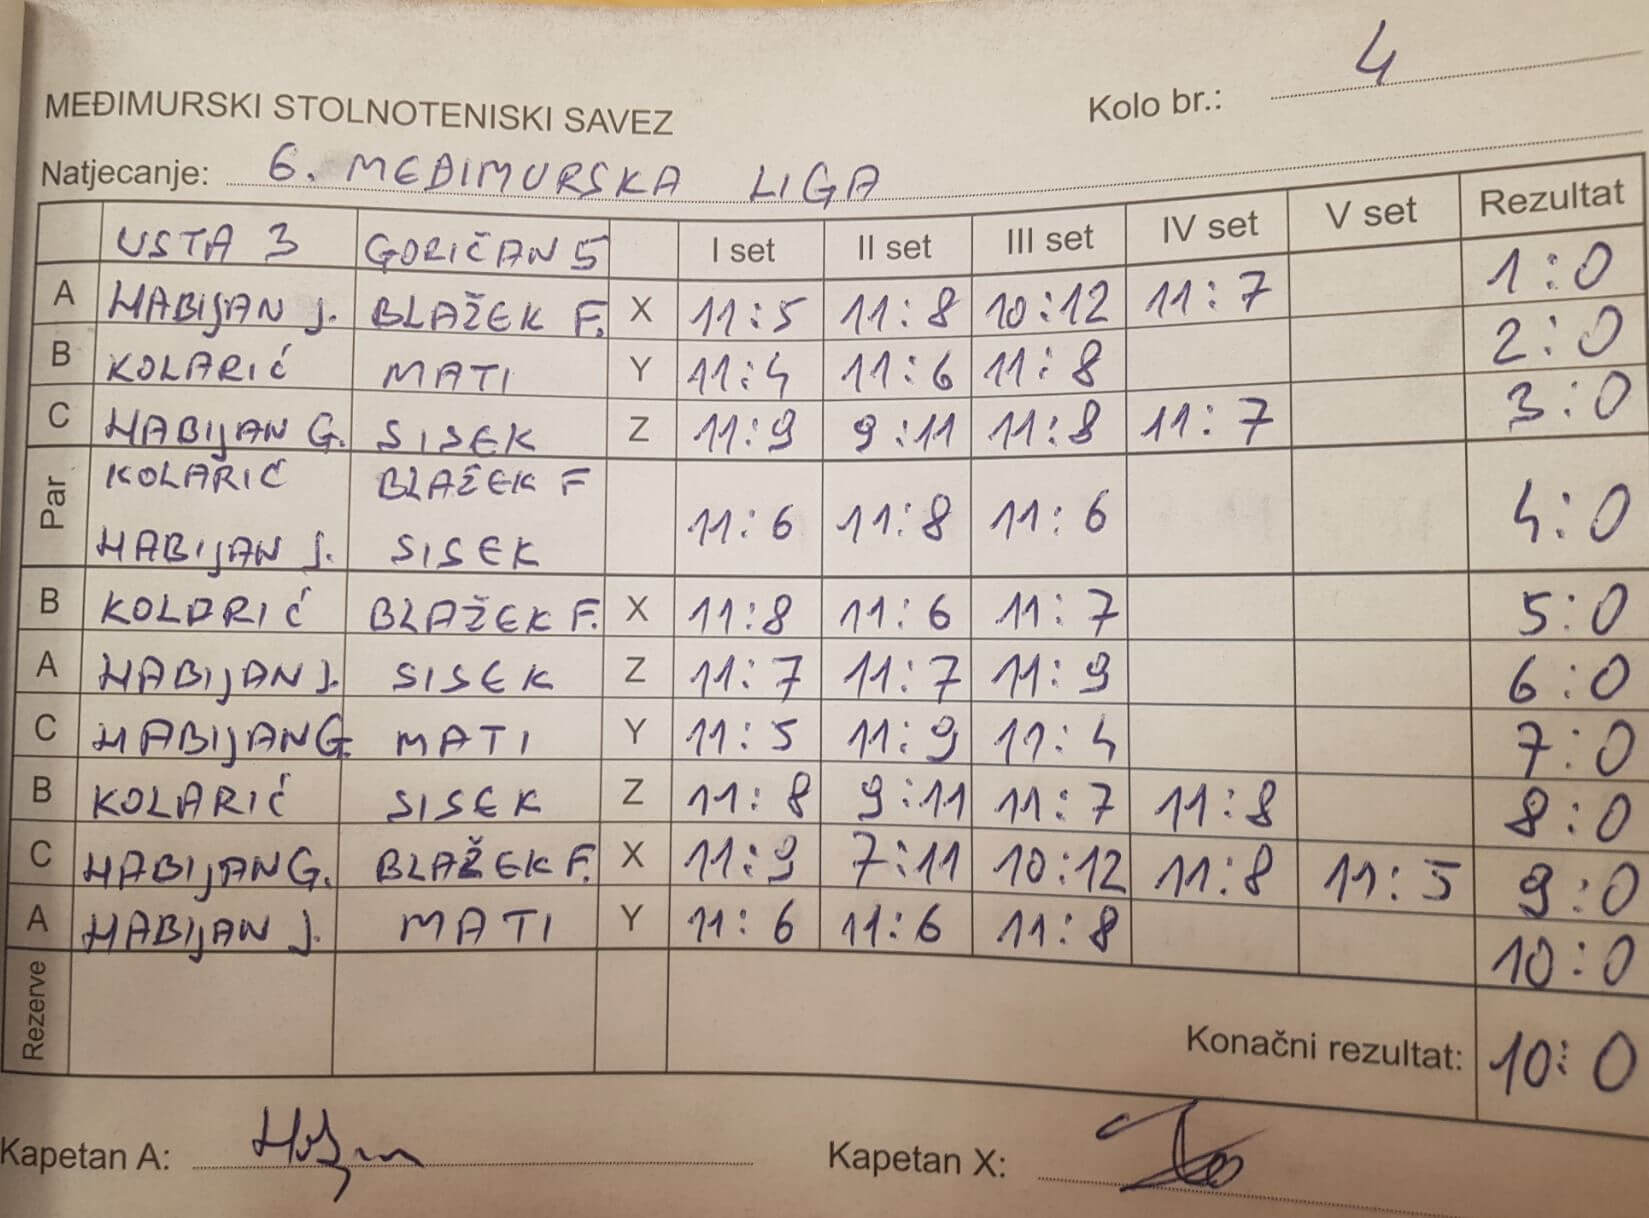 Kolo br.: 4
MEĐIMURSKI STOLNOTENISKI SAVEZ
Natjecanje: 6. MEĐIMURSKA LIGA
USTA 3 GORIČAN 5 I set II set III set IV set V set Rezultat
A HABIJAN J. BLAŽEK F. X 11:5 11:8 10:12 11:7 1:0
B KOLARIĆ MATI Y 11:4 11:6 11:8 2:0
C HABIJAN G. SISEK Z 11:9 9:11 11:8 11:7 3:0
Par KOLARIĆ BLAŽEK F 11:6 11:8 11:6 4:0
HABIJAN J. SISEK
B KOLARIĆ BLAŽEK F. X 11:8 11:6 11:7 5:0
A HABIJAN J. SISEK Z 11:7 11:7 11:9 6:0
C HABIJAN G. MATI Y 11:5 11:9 11:4 7:0
B KOLARIĆ SISEK Z 11:8 9:11 11:7 11:8 8:0
C HABIJAN G. BLAŽEK F. X 11:9 7:11 10:12 11:8 11:5 9:0
A HABIJAN J. MATI Y 11:6 11:6 11:8 10:0
Rezerve
Konačni rezultat: 10:0
Kapetan A:
Kapetan X: